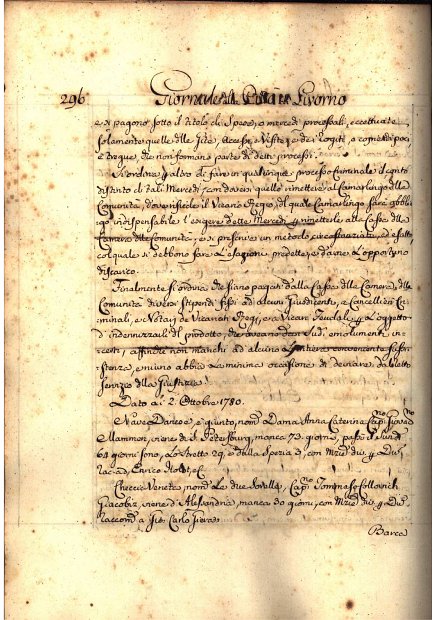 296 Giornale della Posta di Livorno
e si pagono sotto il titolo di Spese, o mercedi processali, eccettuate
solamente quelle delle Gite, Accessi, e Visite, e dei Rogiti, o copie di paci,
e tregue, che non formano parte di detti processi.
Si ordina per altro di fare in qualunque processo Criminale il conto
distinto di tali Mercedi, con doversi quelle rimettere al Camarlingo della
Comunità, dove risiede il Vicario Regio, al quale Camarlingo sarà obbli
go indispensabile l'esigere dette Mercedi, e rimetterle alla Cassa della
Camera delle Comunità, e si prescrive un metodo circostanziato, ed esatto,
col quale si debbono fare l'esazioni predette, e darne l'opportuno
discarico.
Finalmente si ordina che siano pagati dalla Cassa della Camera delle
Comunità diversi stipendi fissi ad alcuni Giusdicenti, e Cancellieri Cri
minali, e Notari de Vicariati Regi, ora Vicari Feudali, per l'oggetto
d'indennizzarli del prodotto, che traevano dai Sud. emolumenti in
certi, affinchè non manchi ad alcuno l'intiera conveniente sussi
stenza, e niuno abbia la minima occasione di deviare dal retto
servizio della Giustizia.
Dato dì 2. Ottobre 1780.
Nave Danese è giunto, nom. Dama Anna Caterina, Cap.no
Mammen, viene da S. Petersburg, manca 73. giorni, passò il Sund
64 giorni sono, lo Stretto 29, e dalla Spezia 2, con Mrie. div. per Div.
Checcia Veneta, nom. Le due Sorelle, Cap.no Tommaso Collovich
Giacobiz, viene d'Alessandria, manca 30 giorni, con Mrie. div. per Div.
raccom. a Sig. Carlo
Barca